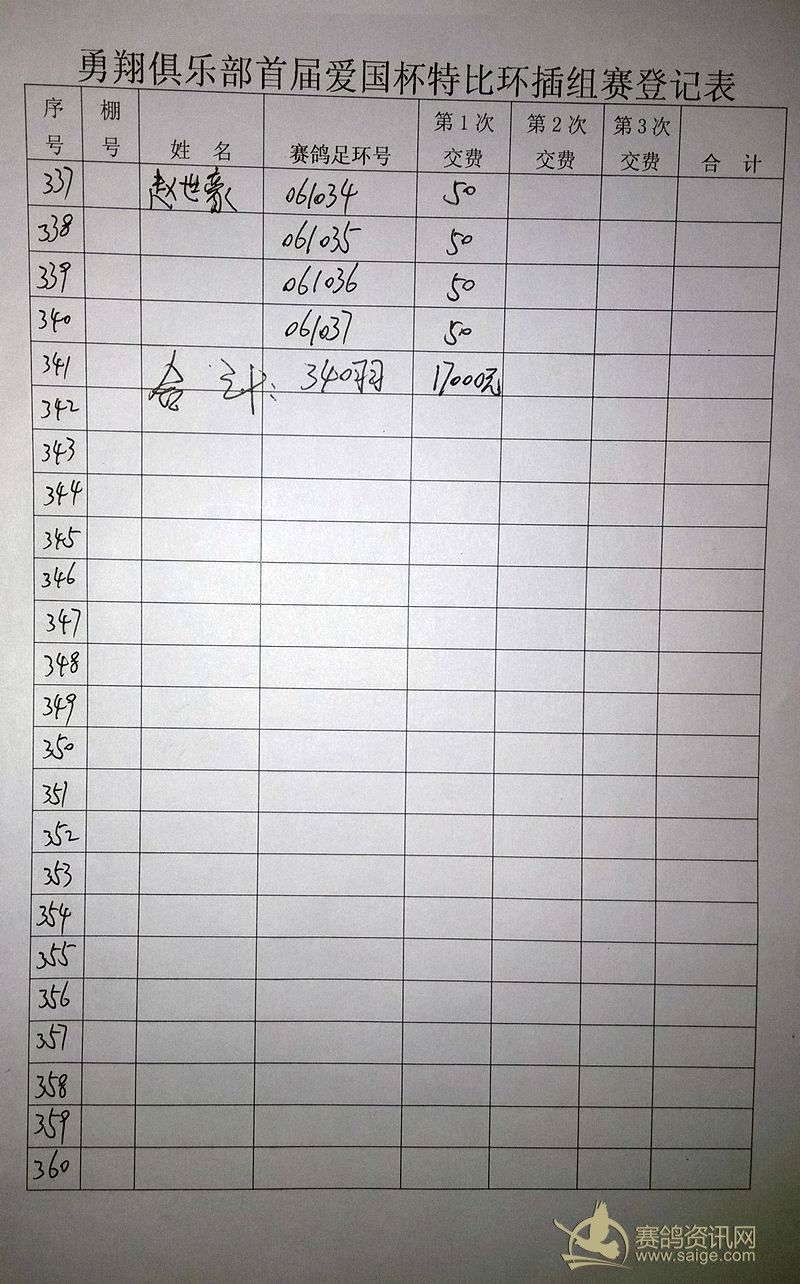 勇翔俱乐部首届爱国杯特比环插组赛登记表
序号 棚号 姓 名 赛鸽足环号 第1次交费 第2次交费 第3次交费 合 计
337 赵世豪 061034 50
338 061035 50
339 061036 50
340 061037 50
341 合 计: 340羽 17000元
342
343
344
345
346
347
348
349
350
351
352
353
354
355
356
357
358
359
360
赛鸽资讯网
www.saige.com